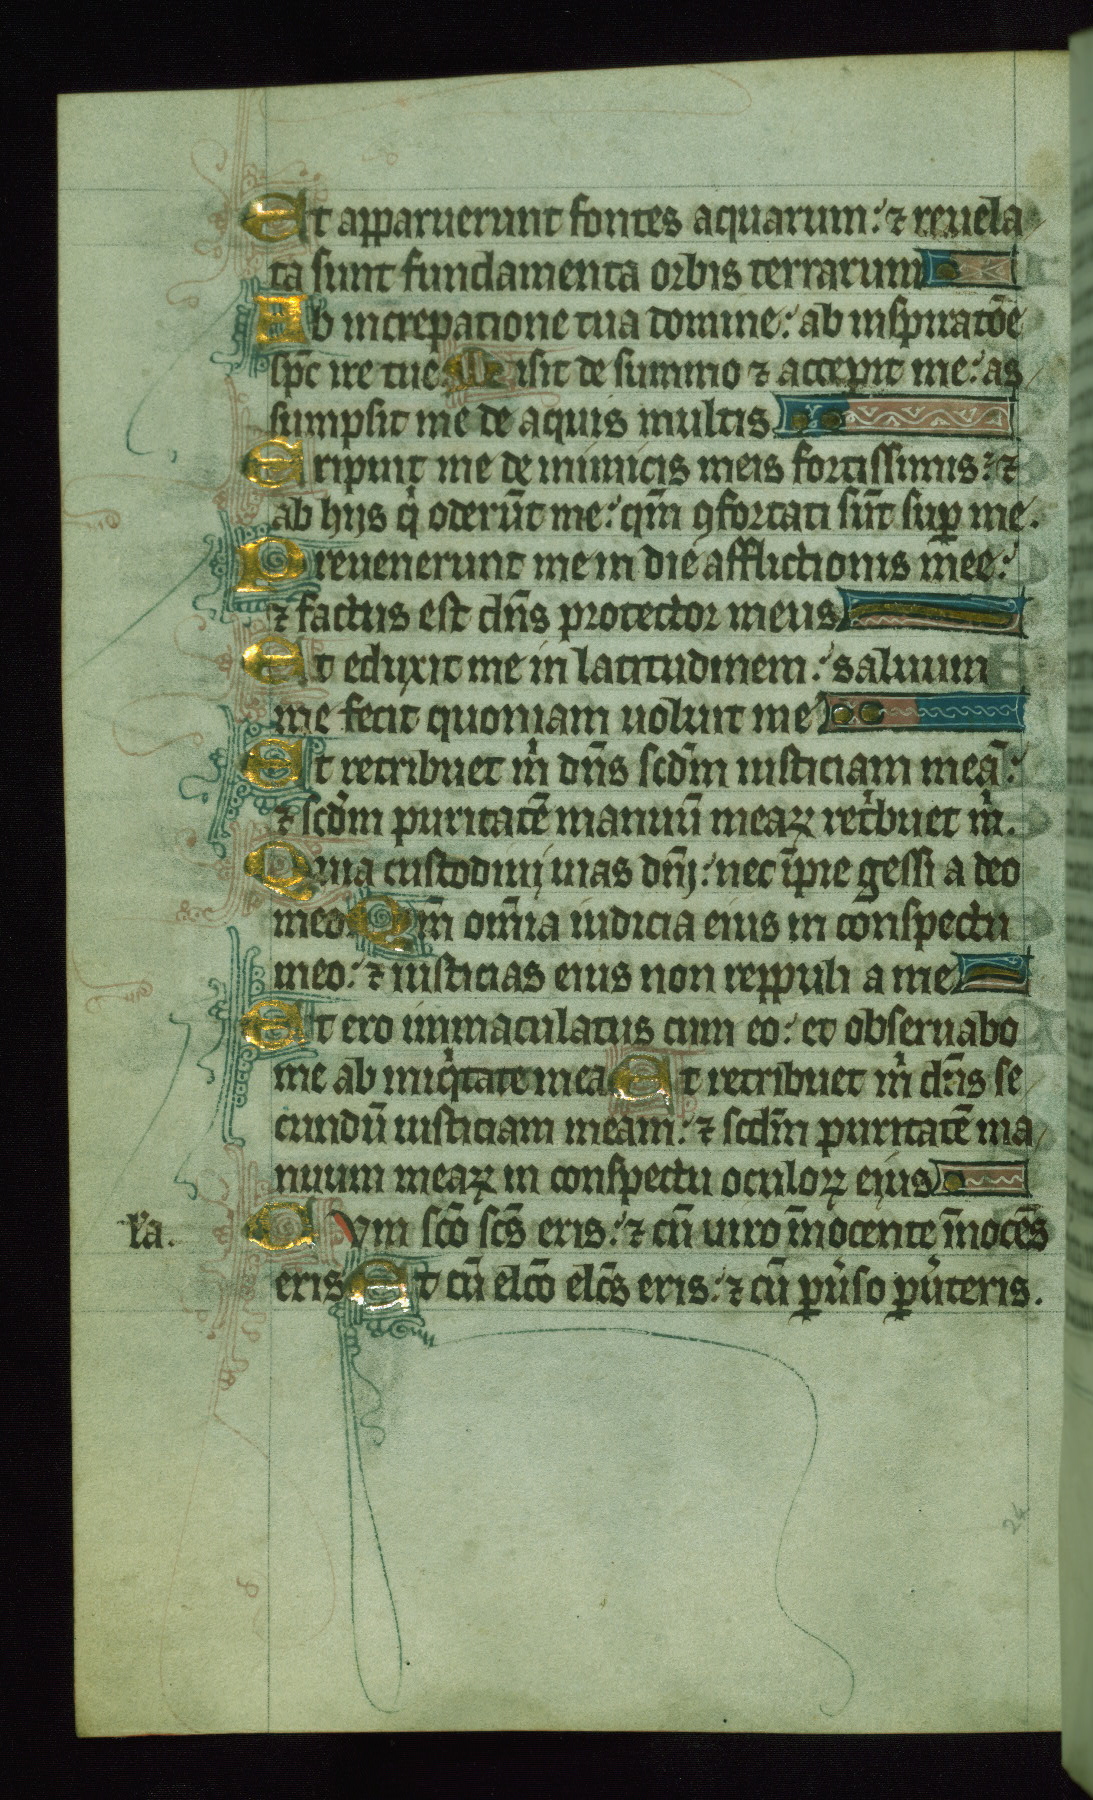 Et apparuerunt fontes aquarum: ⁊ reuela
ta sunt fundamenta orbis terrarum
Ab increpatione tua domine: ab inspiratōe
sp̄c ire tue. Misit de summo ⁊ accepit me: as
sumpsit me de aquis multis
Eripuit me de inimicis meis fortissimis: ⁊
ab hijs q̇ oderūt me: qm̄ ꝯfortati sūt suꝑ me.
Preuenerunt me in die afflictionis mee:
⁊ factus est dn̄s protector meus
Et eduxit me in latitudinem: saluum
me fecit quoniam uoluit me
Et retribuet m̍ dn̄s scdm̄ iusticiam meā:
⁊ scdm̄ puritatē manuū meaꝝ ret̍buet m̍.
Quia custodiuj uias dn̄j: nec īpie gessi a deo
meo. Qm̄ om̄ia iudicia eius in conspectu
meo: ⁊ iusticias eius non reppuli a me
Et ero immaculatus cum eo: et obseruabo
me ab iniq̍tate mea Et retribuet m̍ dn̄s se
cundū iusticiam meam: ⁊ scdm̄ puritatē ma
nuum meaꝝ in conspectu oculoꝝ ejus
Cvm sc̄o sc̄s eris: ⁊ cū uiro īnocente īnocēs
eris Et cū elc̄o elc̄s eris: ⁊ cū ꝑu̍so ꝑu̍teris.
24